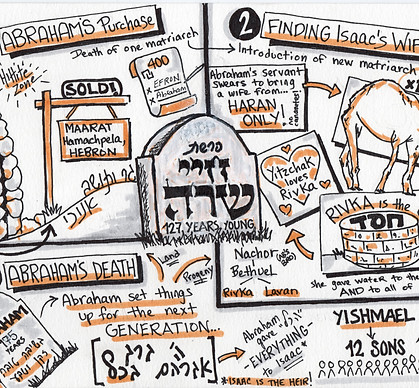 ABRAHAM'S Purchase
Death of one matriarch
Hittite Zone
SOLD!
MAARAT
Hamachpela,
HEBRON
400
x EFRON
x Abraham
2
FINDING Isaac's WIF
Introduction of new matriarch
Abraham's servant
swears to bring
a wife from...
HARAN
ONLY!
Yitzchak
loves
Rivka
RIVKA is the
חסד
she gave water to the
AND to all of
פרשת
חיי
שרה
127 YEARS YOUNG
Land
Progeny
Nachor
Bethuel
Rivka Lavan
ABRAHAM'S DEATH
HAM
175
YEARS
Abraham set things
up for the next
GENERATION...
Abraham
gave
-EVERYTHING-
to Isaac*
*ISAAC is THE HEIR!
YISHMAEL
12 SONS